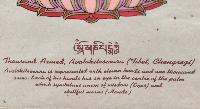 Thousand Armed, Avalokiteswara (Tibet, Chengrezi)
Avalokiteswara is represented with eleven heads and one thousand
arms. Each of his hands has an eye in the centre of the palm
which symbolises union of wisdom (Eyes) and
skillful means (Hands)